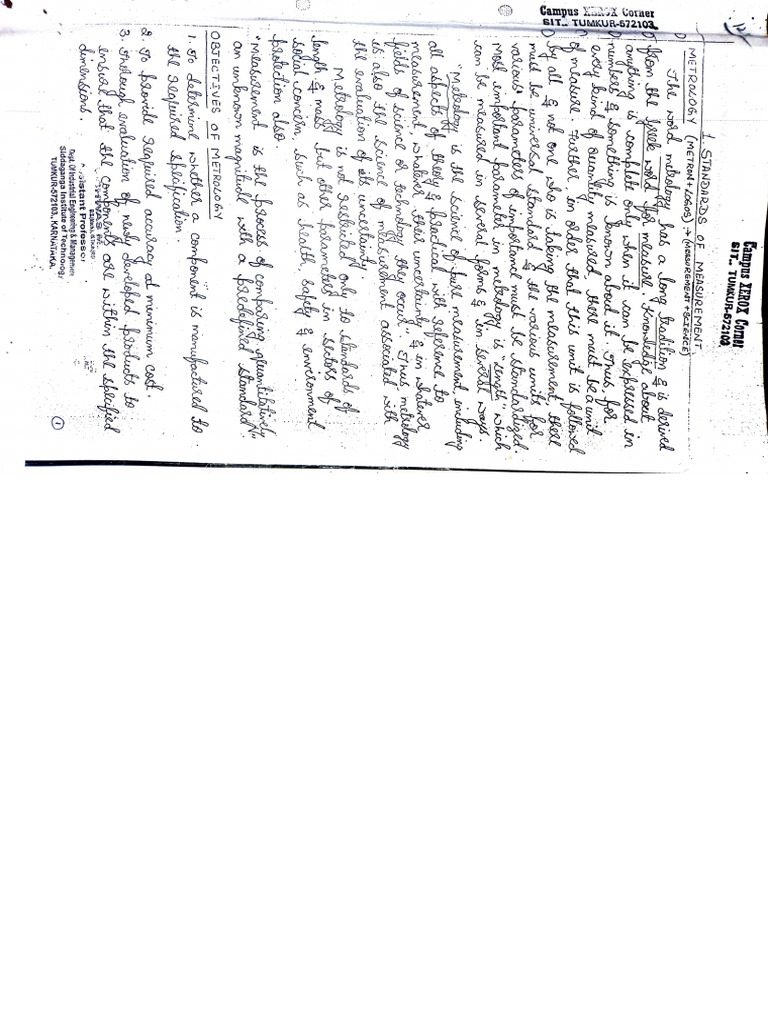 Campus XEROX Corner
SIT., TUMKUR-572103
Campus XEROX Corner
SIT., TUMKUR-572103
1. STANDARDS OF MEASUREMENT
METROLOGY (METRON + LOGOS) → (MEASUREMENT + SCIENCE)
The word metrology has a long tradition & is derived
from the Greek word for measure. Knowledge about
anything is complete only when it can be expressed in
numbers & something is known about it. Thus, for
every kind of quantity measured, there must be a unit
of measure. Further, in order that this unit is followed
by all & not one who is taking the measurement, there
must be universal standard & the various units for
various parameters of importance must be standardized.
Most important parameter in metrology is "length" which
can be measured in several forms & in several ways
"Metrology is the science of pure measurement, including
all aspects of theory & practical with reference to
measurement whatever their uncertainty & in whatever
fields of science or technology they occur". Thus metrology
is also the science of measurement associated with
the evaluation of its uncertainty.
Metrology is not restricted only to standards of
length & mass but other parameters in sectors of
social concern such as health, safety & environment
protection also.
"Measurement is the process of comparing quantitatively
an unknown magnitude with a predefined standard".
OBJECTIVES OF METROLOGY
1. To determine whether a component is manufactured to
the required specification.
2. To provide required accuracy at minimum cost.
3. Thorough evaluation of newly developed products to
ensure that the components are within the specified
dimensions.
Assistant Professor
Dept. Of Industrial Engineering & Management
Siddaganga Institute of Technology
TUMKUR-572103, KARNATAKA.
1